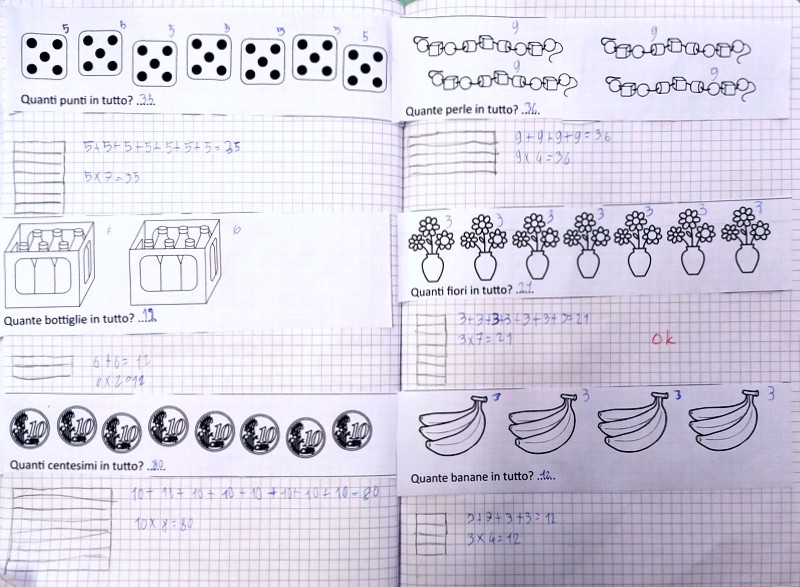 5 5 5 5 5 5 5
Quanti punti in tutto? .35.
5+5+5+5+5+5+5=35
5×7=35
6 6
Quante bottiglie in tutto? .12.
6+6=12
6×2=12
10 10 10 10 10 10 10 10
Quanti centesimi in tutto? .80.
10+10+10+10+10+10+10+10=80
10×8=80
9 9
9 9
Quante perle in tutto? .36.
9+9+9+9=36
9×4=36
3 3 3 3 3 3 3
Quanti fiori in tutto? .21.
3+3+3+3+3+3+3=21
3×7=21
Ok
3 3 3 3
Quante banane in tutto? .12.
3+3+3+3=12
3×4=12